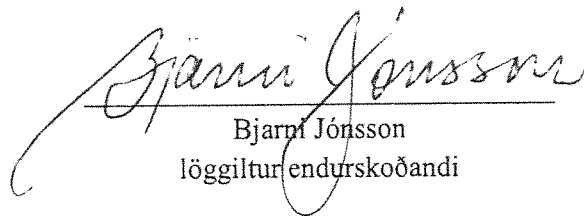 Bjarni Jónsson
Bjarni Jónsson
löggiltur endurskoðandi